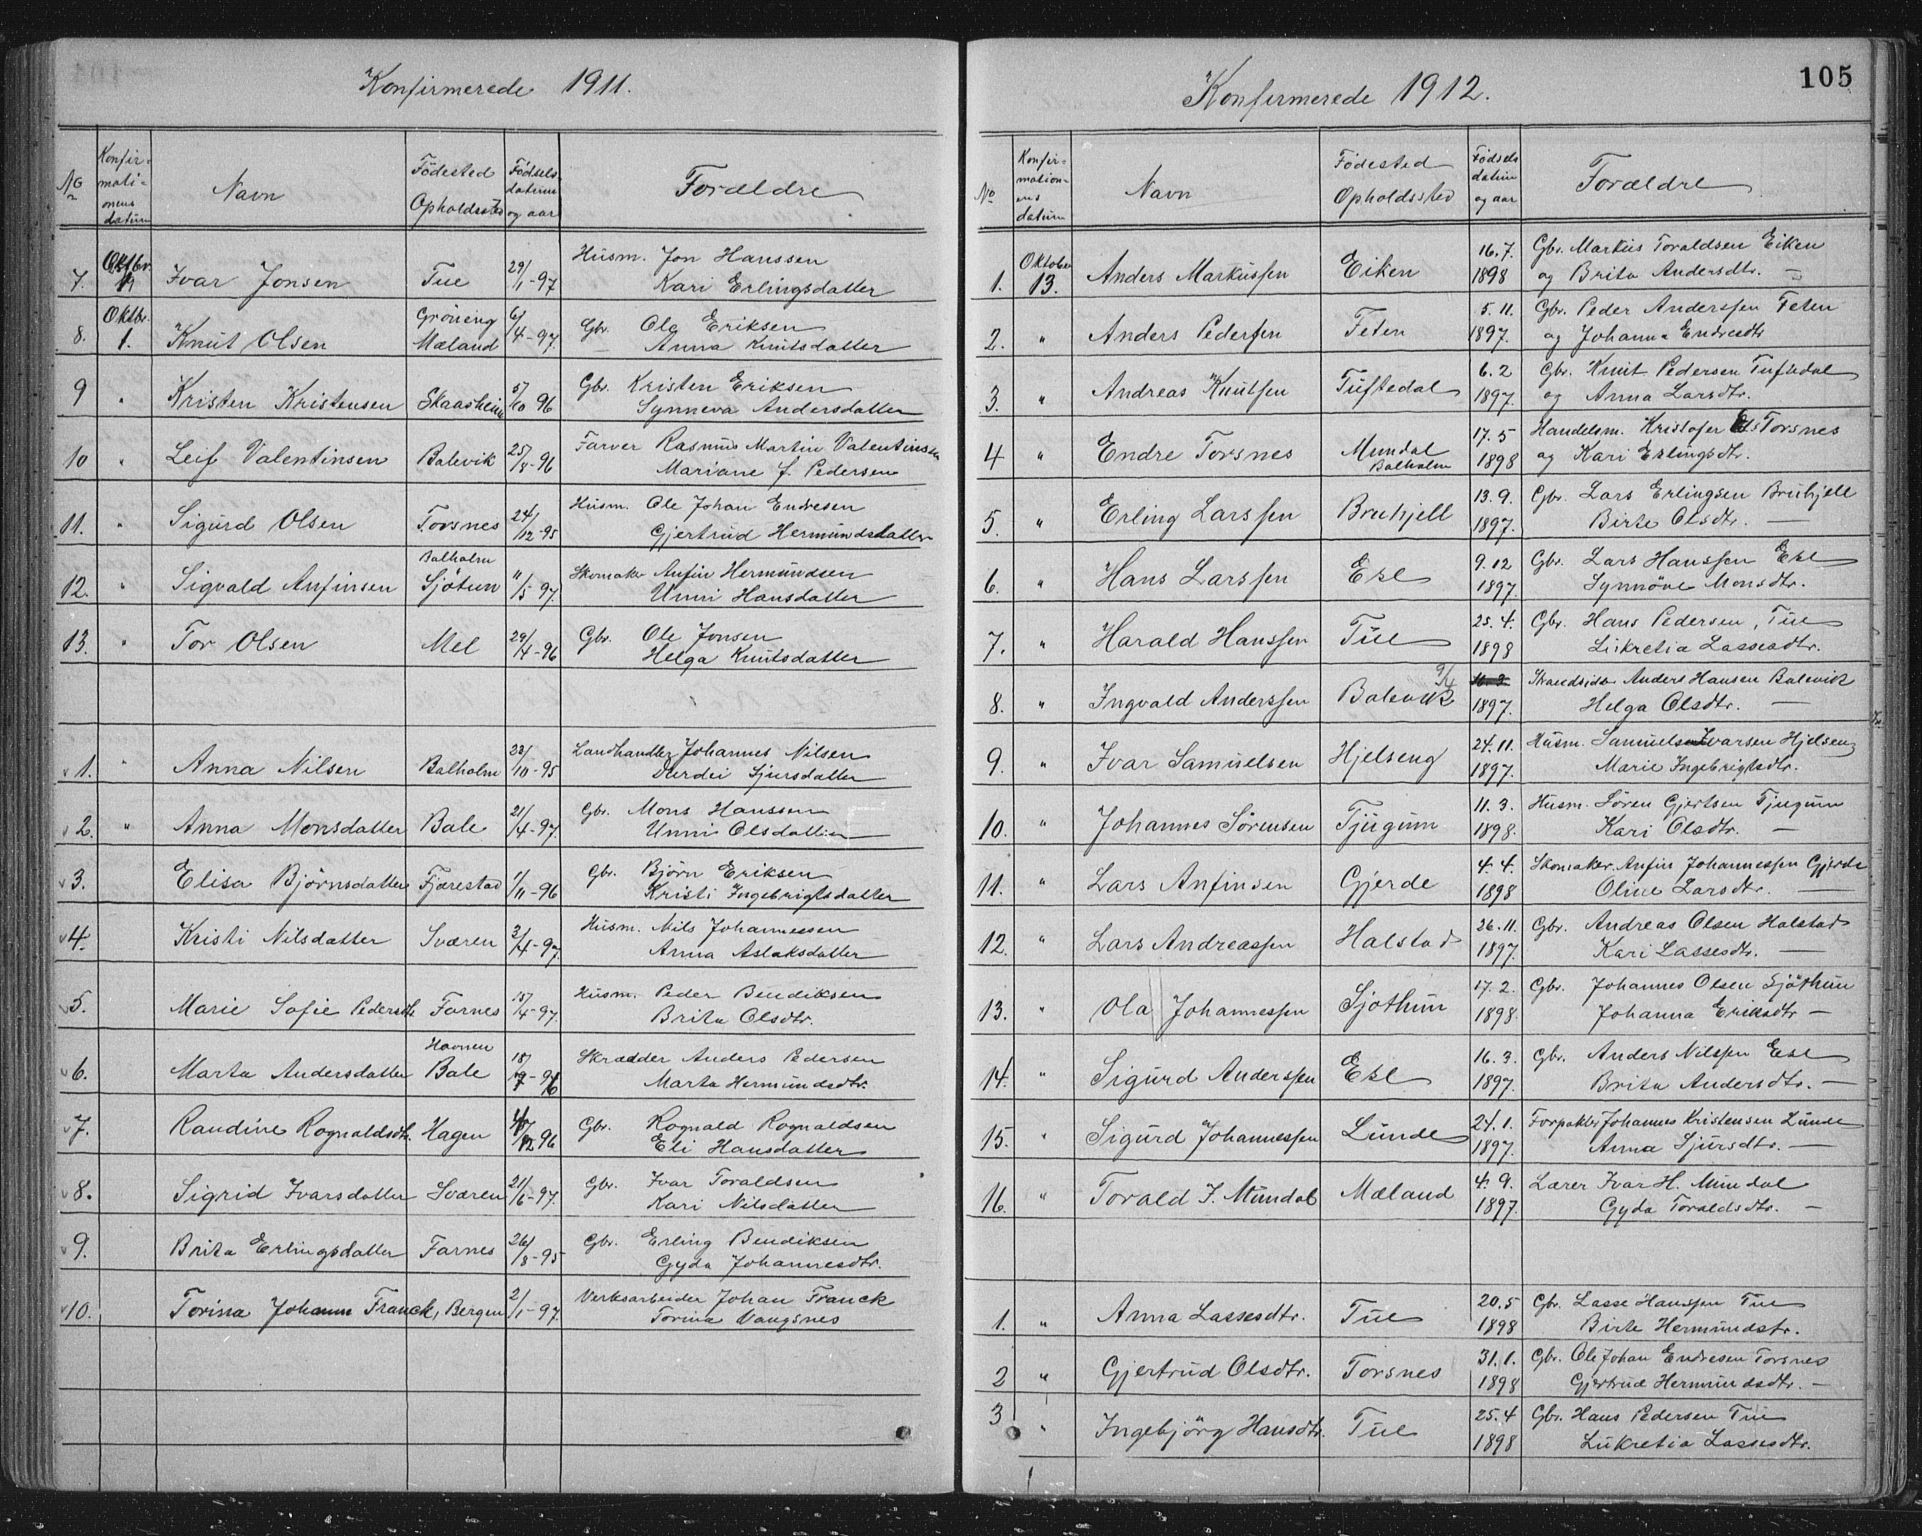 Konfirmerede 1911.
No Konfirmationens datum Navn Födested Opholdssted Födselsdatum og aar Forældre
7. Oktbr. Ivar Jonsen Tue 29/1-97 Husm. Jon Hanssen
Kari Erlingsdatter
8. Oktbr. 1. Knut Olsen Gröneng Mæland 6/4-97. Gbr. Ola Eriksen
Anna Knutsdatter
9 " Kristen Kristensen Skaasheim 5/10 96 Gbr. Kristen Eriksen
Synneva Andersdatter
10 " Leif Valentinsen Balevik 25/8-96 Farver Rasmus Martin Valentinsen
Mariane f. Pedersen
11. " Sigurd Olsen Torsnes 24/12-95 Husm. Ole Johan Endresen
Gjertrud Hermundsdatter
12. " Sigvald Anfinsen Balholm Sjötun 11/5-97. Skomaker Anfin Hermundsen
Unni Hansdatter
13. " Tor Olsen Mel 29/4-96 Gbr. Ole Jonsen
Helga Knutsdatter
1. " Anna Nilsen Balholm 23/10-95 Landhandler Johannes Nilsen
Durdei Sjursdatter
2. " Anna Monsdatter Bale 21/4-97. Gbr. Mons Hanssen
Unni Olsdatter
3. Elisa Björnsdatter Fjærestad 1/11-96 Gbr. Björn Eriksen
Kristi Ingebrigtsdatter
4. Kristi Nilsdatter Sværen 3/4-97 Husm. Nils Johannessen
Anna Aslaksdatter
5. Marie Sofie Pedersdtr Farnes 15/4-97. Husm. Peder Bendiksen
Brita Olsdtr.
6. Marta Andersdatter Havnen Bale 18/9-96 Skrædder Anders Pedersen
Marta Hermundsdtr.
7. Randine Rognaldsdtr. Hagen 12 96 Gbr. Rognald Rognaldsen
Eli Hansdatter
8. Sigrid Ivarsdatter Sværen 21/6-97. Gbr. Ivar Toraldsen
Kari Nilsdatter
9. Brita Erlingsdatter Farnes 26/8-95 Gbr. Erling Bendiksen
Gyda Johannesdtr.
10. Torina Johanne Franck, Bergen 2/1-97. Verksarbeider Johan Franck
Torina Vangsnes
105
Konfirmerede 1912.
No Konfirmationens datum Navn Födested Opholdssted Födsels datum og aar Forældre
1. Oktober 13. Anders Markussen Eiken 16.7. 1898 Gbr. Markus Toraldsen Eiken
og Brita Andersdtr. —
2. " Anders Pedersen Feten 5.11. 1897. Gbr. Peder Anderssen Feten
og Johanna Endresdtr
3. " Andreas Knutsen Tuftedal 6.2 1897. Gbr. Knut Pedersen Tuftedal
og Anna Larsdtr.
4 " Endre Torsnes Mundal Balholm 17.5 1898 Handelsm. Kristofer Torsnes
og Kari Erlingsdtr.
5. " Erling Larssen Bruhjell 13.9. 1897. Gbr. Lars Erlingsen Bruhjell
Birte Olsdtr. —
6. " Hans Larssen Ese 9.12 1897. Gbr. Lars Hanssen Ese
Synnöve Monsdtr.
7. " Harald Hanssen Tue 25.4. 1898 Gbr. Hans Pedersen, Tue
Lukretia Lassesdtr.
8. " Ingvald Anderssen Balevik 9/4 1897. Strandsidr. Anders Hansen Balevik
Helga Olsdtr. —
9. " Ivar Samuelsen Hjelseng 24.11. 1897. Husm. Samuel Ivarsen Hjelseng
Marie Ingebrigtsdtr.
10. " Johannes Sörensen Tjugum 11.3. 1898. Husm. Sören Gjertsen Tjugum
Kari Olsdtr. —
11. " Lars Anfinsen Gjerde 4.4. 1898 Skomaker. Anfin Johannessen Gjerde
Oline Larsdtr. —
12. " Lars Andreassen Halstad 26.11. 1897. Gbr. Andreas Olsen Halstad
Kari Lassesdtr. —
13. " Ola Johannessen Sjöthun 17.2. 1898. Gbr. Johannes Olsen Sjöthun
Johanna Eriksdtr —
14. " Sigurd Anderssen Ese 16.3. 1897. Gbr. Anders Nilssen Ese
Brita Andersdtr. —
15. " Sigurd Johannessen Lunde 24.1. 1897. Forpakter Johannes Kristensen Lunde
Anna Sjursdtr. —
16. " Torald I. Mundal Mæland 4.9. 1897 Lærer Ivar H. Mundal
Gyda Toraldsdtr. —
1. " Anna Lassesdtr. Tue 20.5 1898 Gbr. Lasse Hanssen Tue
Birte Hermundsdtr.
2 " Gjertrud Olsdtr. Torsnes 31.1. 1898 Gbr. Ole Johan Endresen Torsnes
Gjertrud Hermundsdtr. —
3 " Ingebjörg Hansdtr. Tue 25.4 1898 Gbr. Hans Pedersen Tue
Lukretia Lassesdtr.